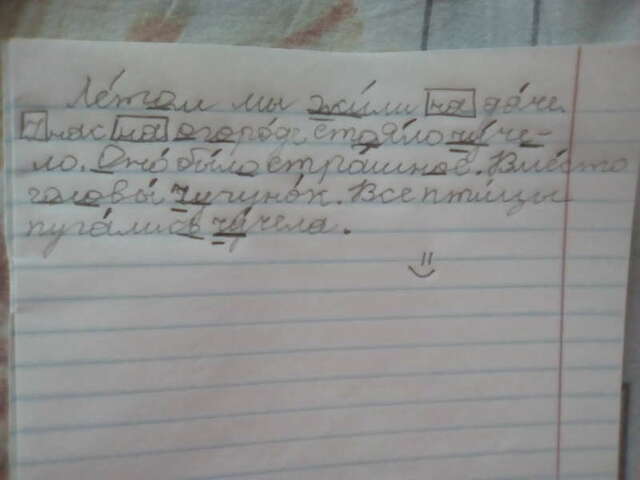 Ле́том мы жи́ли на да́че.
У нас на огоро́де стоя́ло чу́че-
ло. Оно́ бы́ло стра́шное. Вме́сто
головы́ чугуно́к. Все пти́цы
пуга́лись чу́чела.